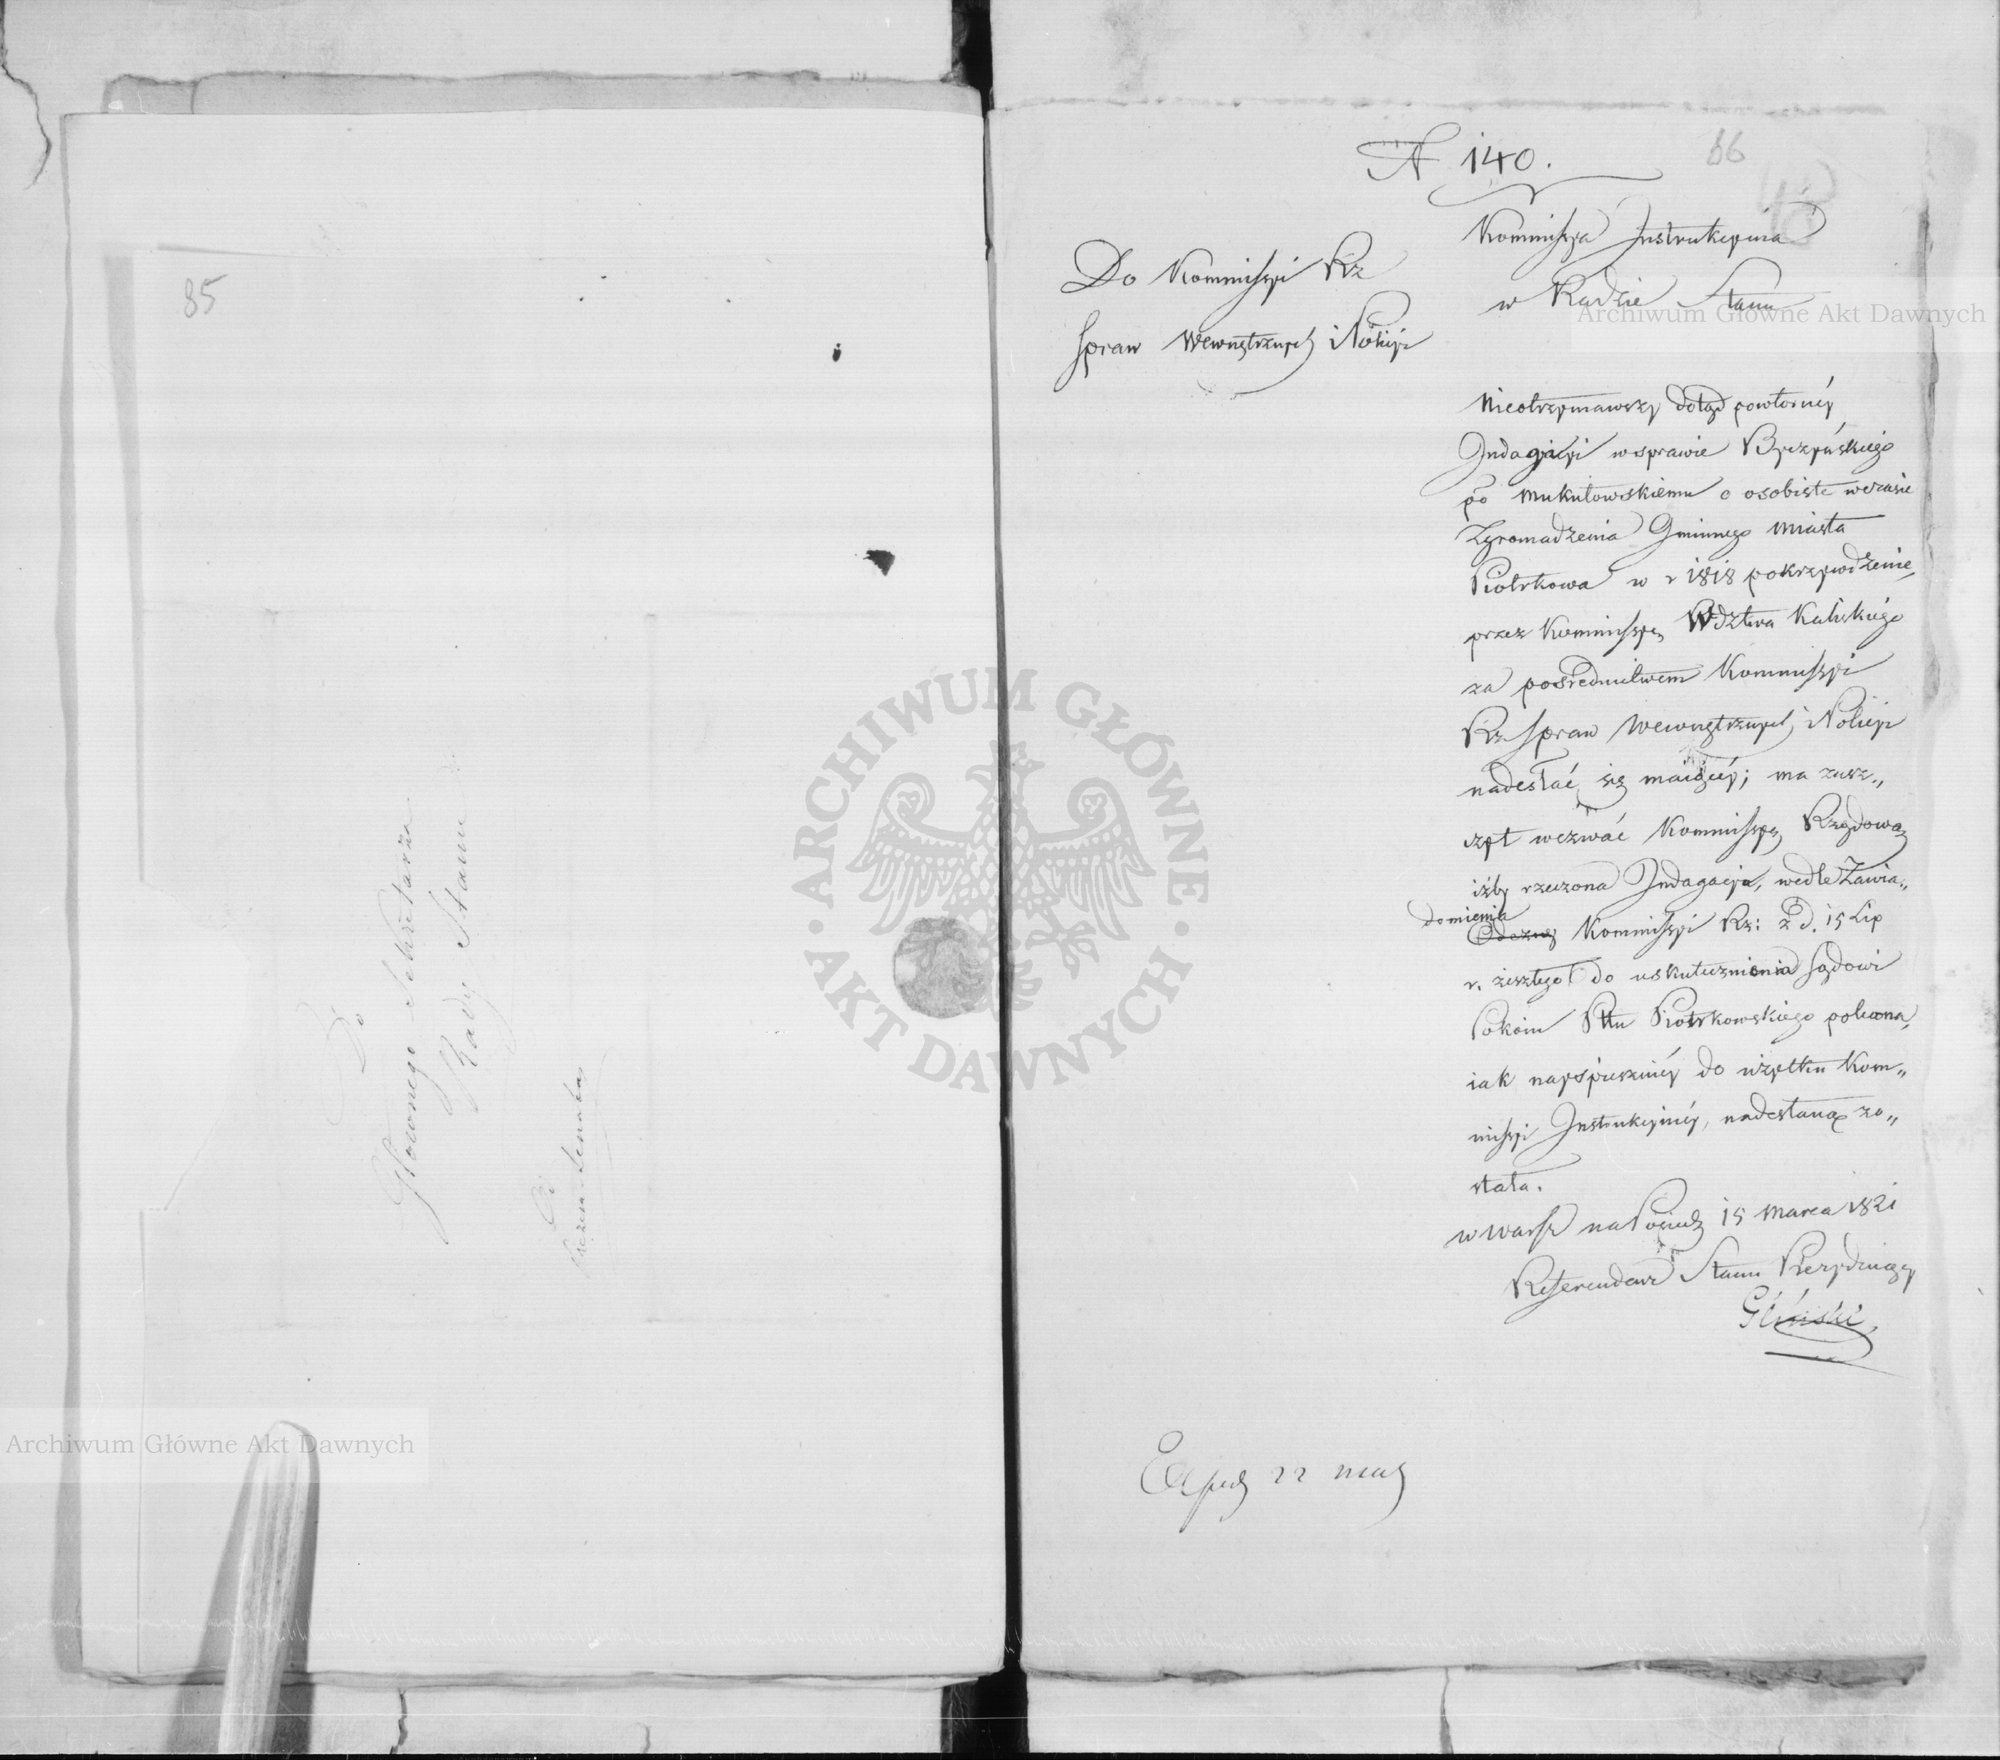 85
Do
Głównego Sekretarza
Rady Stanu
Od
Prezesa Senatu
N 140.
86
Kommissya Instrukcyina
w Radzie Stanu
Do Kommissyi Rz
Spraw Wewnętrznych i Policyi
Nieotrzymawszy dotąd powtornéy
Indagacyi w sprawie Byczyńskiego
po Mukułowskiemu o osobiste w czasie
Zgromadzenia Gminnego Miasta
Piotrkowa w r 1818 pokrzywdzenie,
przez Kommissyę Wdztwa Kaliskiego
za pośrednictwem Kommissyi
Rz Spraw Wewnętrznych i Policyi
nadesłać się maiącéy; ma zasz„
czyt wezwać Kommissyę Rządową
iżby rzeczona Indagacya, wedle Zawia„
domienia
Odezwy Kommissyi Rz: z d. 15 Lip
r. zeszłego do uskutecznienia Sądowi
Pokoiu Pttu Piotrkowskiego polecona,
iak nayspieszniéy do użytku Kom„
missyi Instrukcyinéy, nadesłaną zo„
stała.
w Warsz na Posiedz 15 Marca 1821
Referendarz Stanu Prezyduiący
Gliński
Exped 22 mar
Archiwum Główne Akt Dawnych
Archiwum Główne Akt Dawnych
ARCHIWUM GŁÓWNE
AKT DAWNYCH